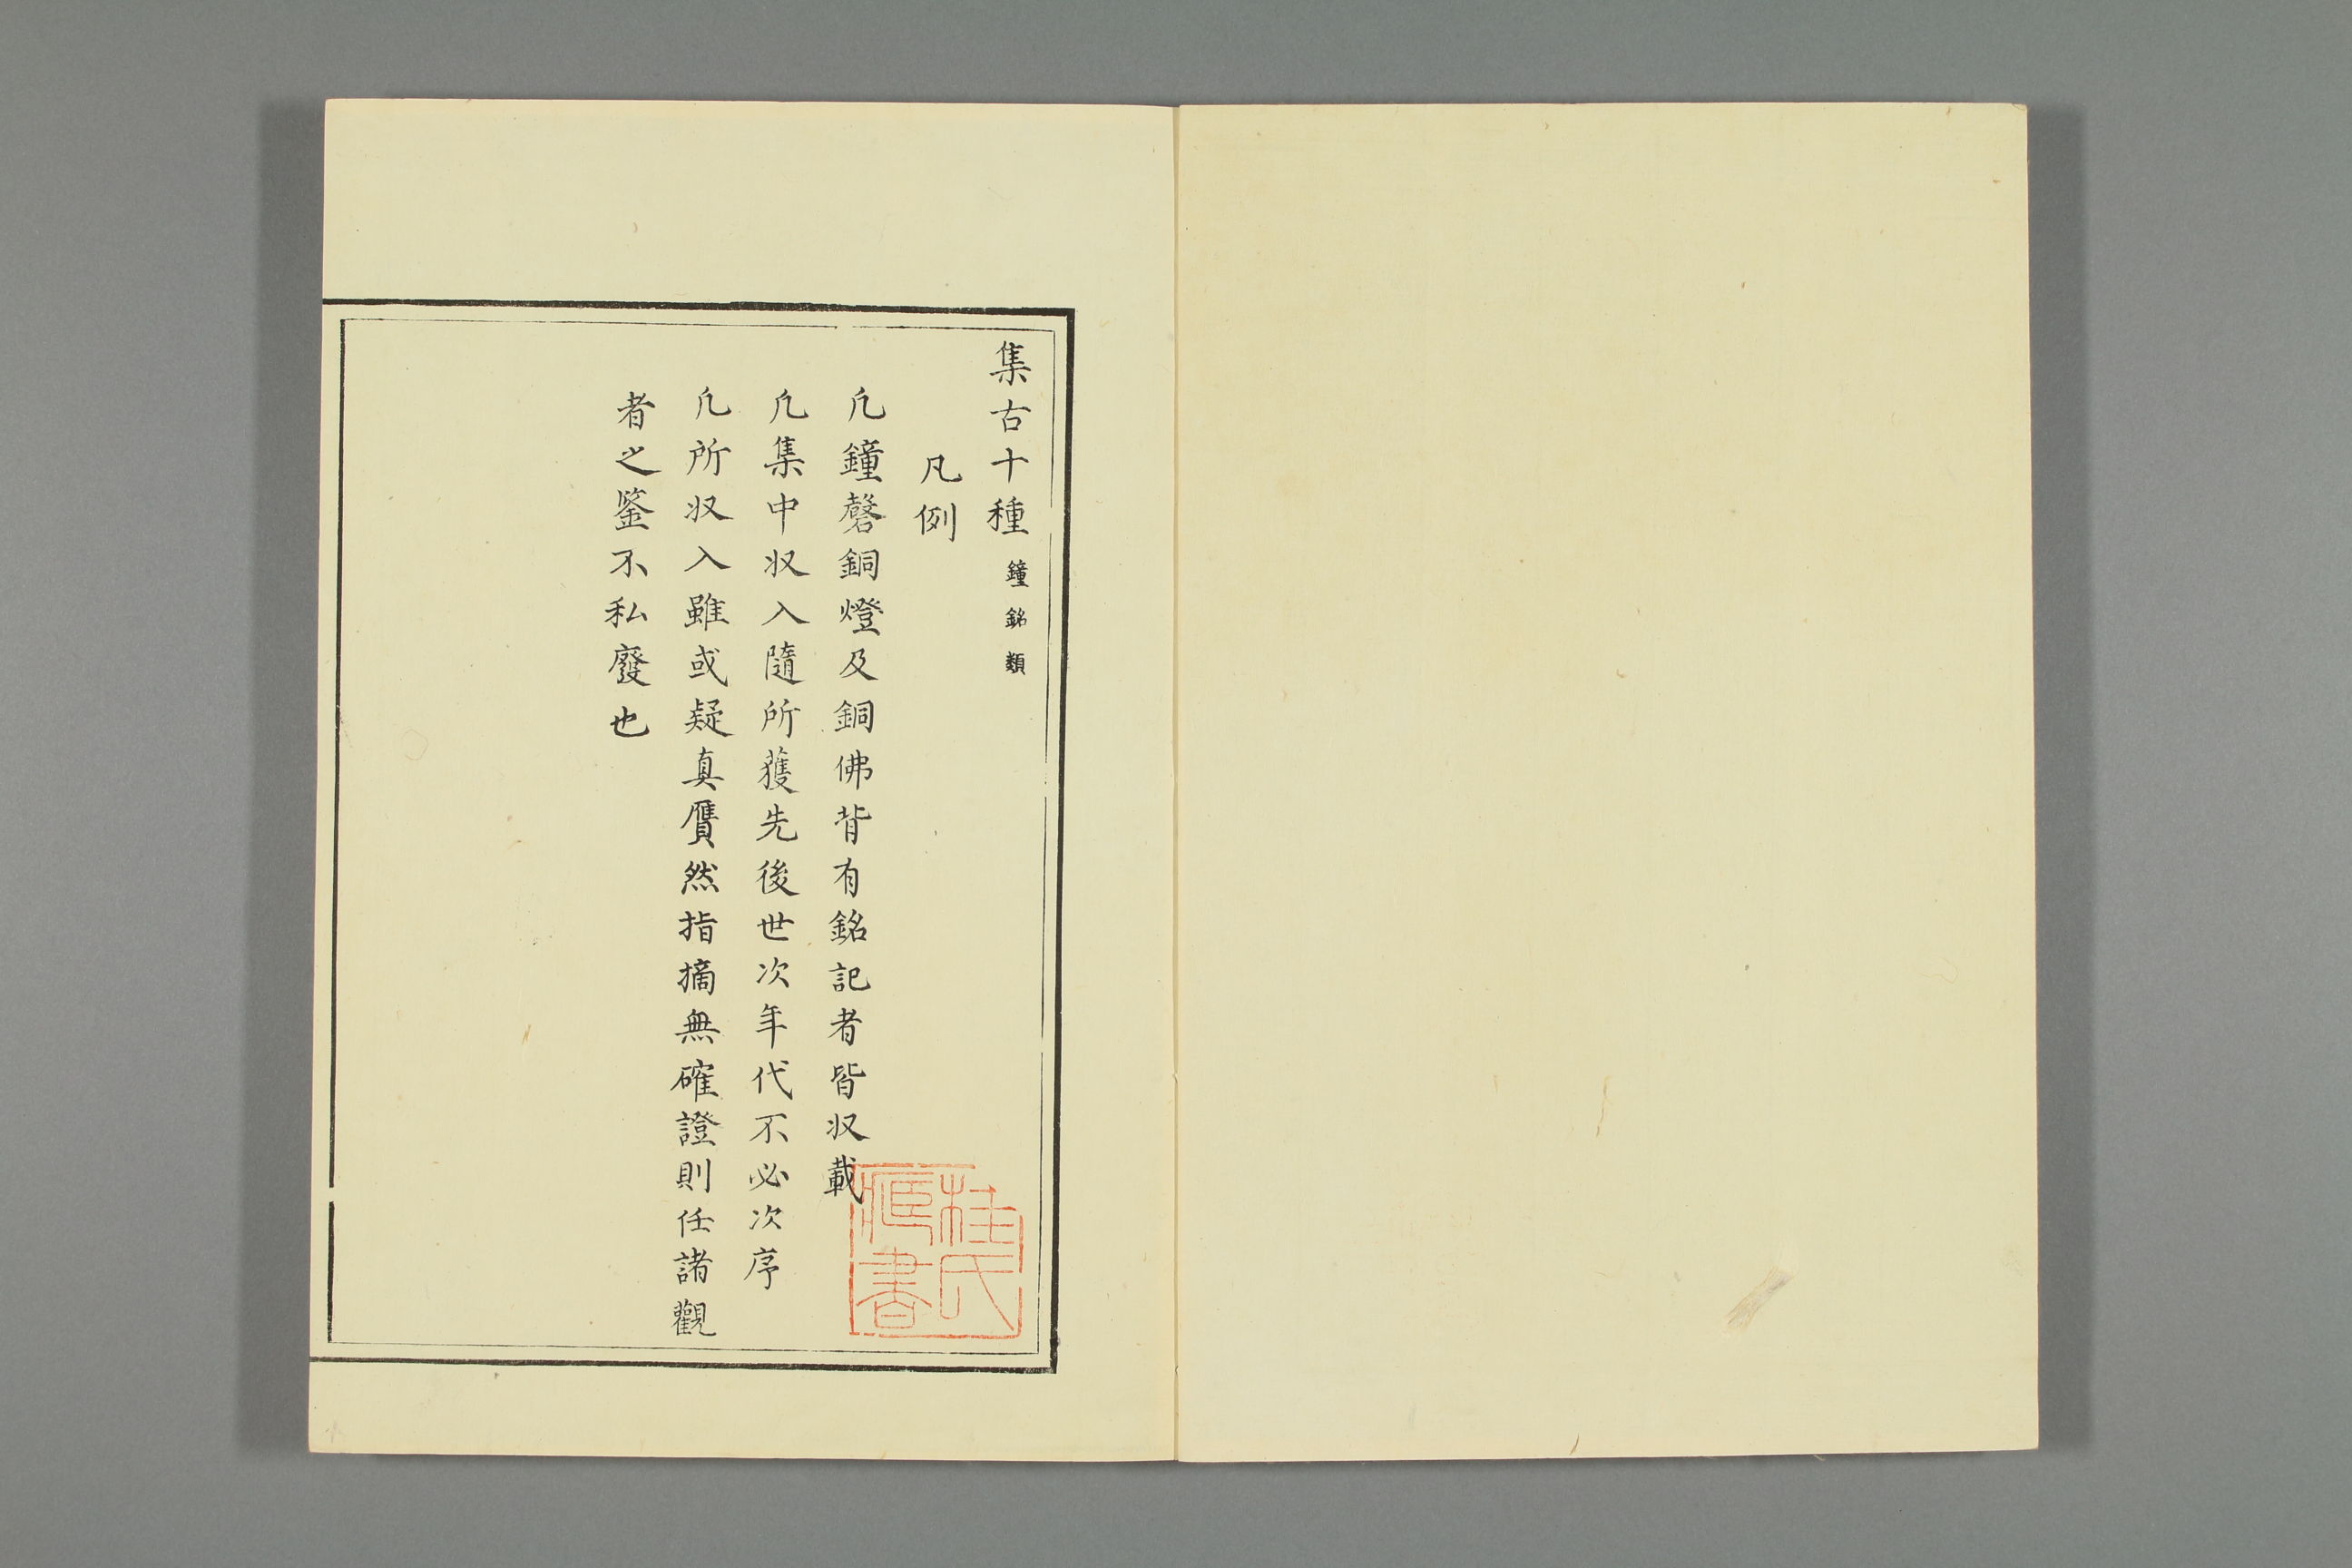 集古十種 鐘銘類
凡例
凡鐘磬銅燈及銅佛背有銘記者皆収載
凡集中収入隨所獲先後世次年代不必次序
凡所収入雖或疑真贋然指摘無確證則任諸觀
者之鑒不私廢也
桂氏
藏書